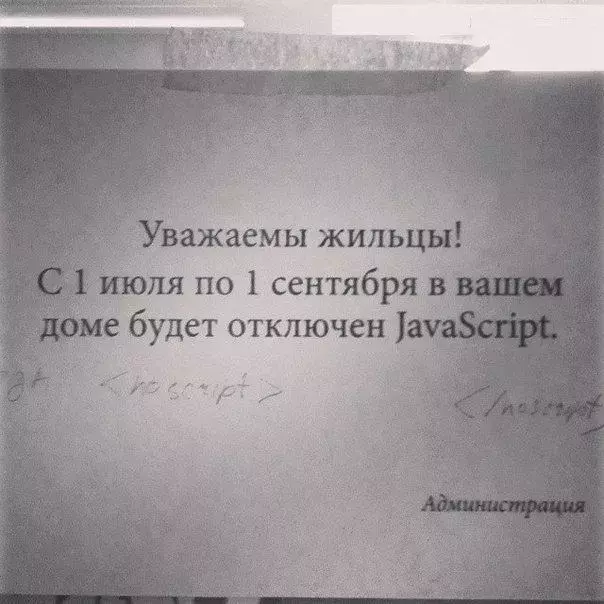 Уважаемы жильцы!
С 1 июля по 1 сентября в вашем
доме будет отключен JavaScript.
<noscript> </noscript
Администрация